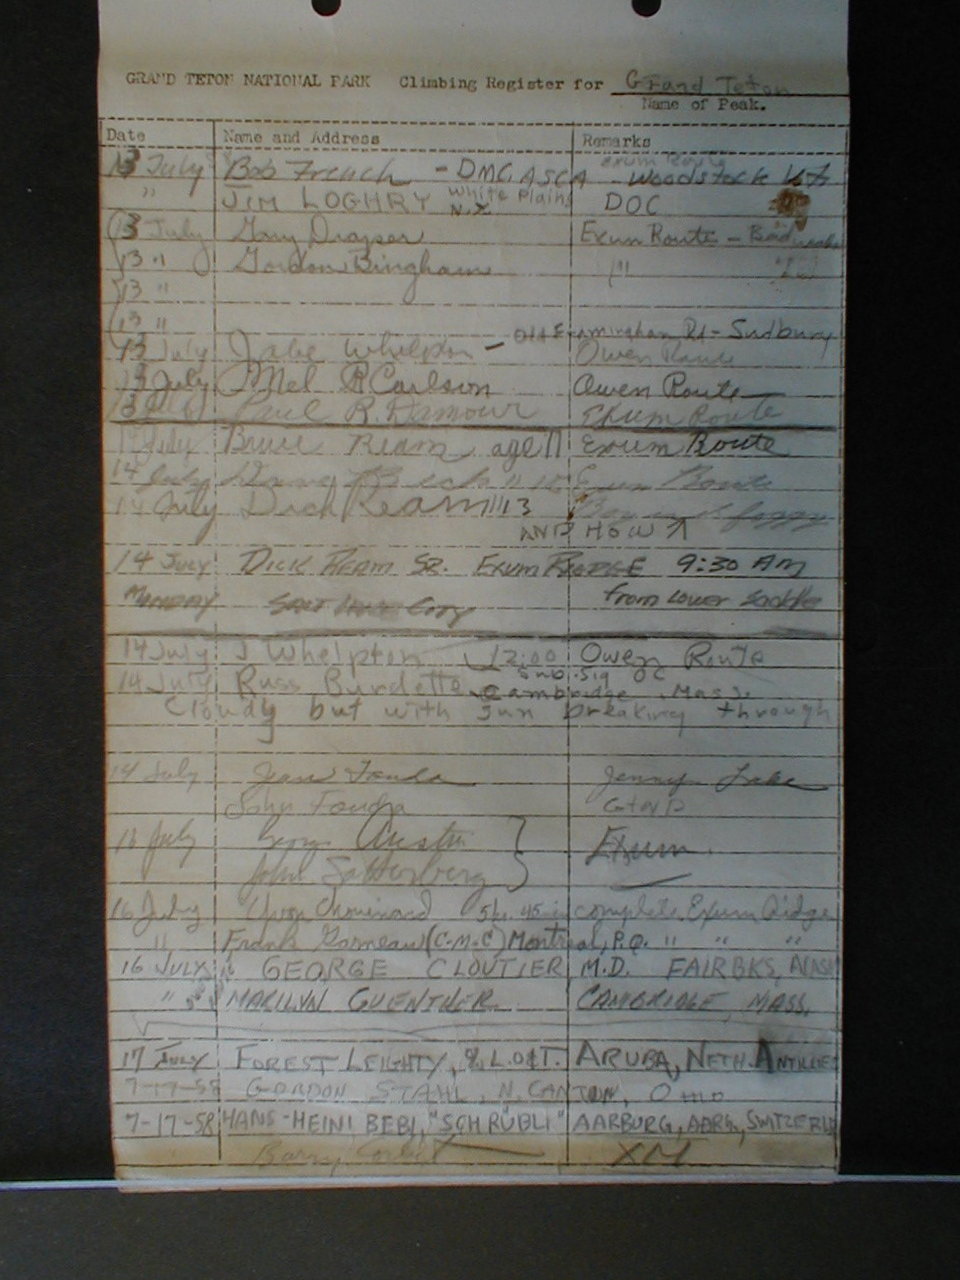 GRAND TETON NATIONAL PARK Climbing Register for Grand Teton
Name of Peak.
Date Name and Address Remarks
Exum Route
13 July Bob French - DMC, ASCA - Woodstock
" JIM LOGHRY White Plains N.Y. DOC
13 July Gary Exum Route -
13 " Gordon Bingham "
13 "
13 "
Old Framingham Rd - Sudbury
13 July Jake Whelpton - Owen Route
13 July Mel R Carlson Owen Route
13 Paul R. Damour Exum Route
14 July Bruce Ream age 11 Exum Route
14 July " Exum Route
14 July Dick Ream 13
AND HOW
14 July DICK REAM SR. EXUM RIDGE 9:30 AM
MONDAY SALT LAKE CITY from Lower Saddle
14 July J Whelpton 12:00 Owen Route
14 July Russ Burdette Cambridge Mass.
Cloudy but with sun breaking through
14 July Jenny Lake
John GTNP
July Austin Exum.
John Satterberg
16 July Yvon Chouinard 5 hr. 45 complete Exum Ridge
" Frank Garneau (C-M-C) Montreal, P.Q. " " "
16 JULY GEORGE CLOUTIER M.D. FAIRBKS, ALASK
" MARILYN GUENTHER CAMBRIDGE, MASS.
17 July FOREST LEIGHTY, ARUBA, NETH. ANTILLES
7-17-58 GORDON STAHL, N. CANTON, OHIO
7-17-58 HANS-HEINI BEBI, "SCHRÜBLI" AARBURG, AARG., SWITZERL
Barry Corbet XM